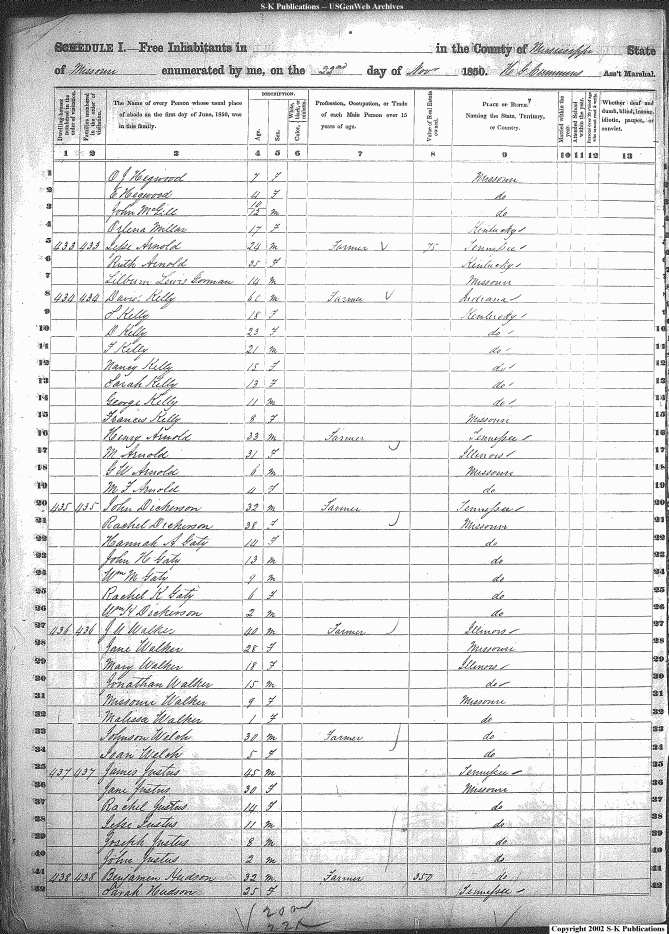 S-K Publications -- USGenWeb Archives
SCHEDULE I.—Free Inhabitants in in the County of Mississippi State
of Missouri enumerated by me, on the 22nd day of Nov 1850. Ass't Marshal.
DESCRIPTION.
Dwelling-houses numbered in the order of visitation.
Families numbered in the order of visitation.
The Name of every Person whose usual place of abode on the first day of June, 1850, was in this family.
Age.
Sex.
White, black, or mulatto.
Color,
Profession, Occupation, or Trade of each Male Person over 15 years of age.
Value of Real Estate owned.
PLACE OF BIRTH. Naming the State, Territory, or Country.
Married within the year.
Attended School within the year.
Whether deaf and dumb, blind, insane, idiotic, pauper, or convict.
1 2 3 4 5 6 7 8 9 10 11 12 13
1 O J Hegwood 7 F Missouri
2 E Hegwood 4 F do
3 John McGill 10/12 m do 3
4 Orlena Millar 17 F Kentucky 4
5 433 433 Jesse Arnold 24 m Farmer 75 Tennessee 5
6 Ruth Arnold 35 F Kentucky 6
7 Lilburn Lewis Gorman 14 m Missouri 7
8 434 434 David Kelly 61 m Farmer Indiana 8
9 S Kelly 18 F Kentucky 9
10 D Kelly 23 F do 10
11 F Kelly 21 m do 11
12 Nancy Kelly 15 F do 12
13 Sarah Kelly 13 F do 13
14 George Kelly 11 m do 14
15 Francis Kelly 8 F Missouri 15
16 Henry Arnold 33 m Farmer Tennessee 16
17 M Arnold 31 F Illinois 17
18 G W Arnold 6 m Missouri 18
19 M F Arnold 4 F do 19
20 435 435 John Dickerson 32 m Farmer Tennessee 20
21 Rachel Dickerson 38 F Missouri 21
22 Hannah A Gaty 14 F do 22
23 John H Gaty 13 m do 23
24 Wm M Gaty 9 m do 24
25 Rachel K Gaty 6 F do 25
26 Wm H Dickerson 2 m do 26
27 436 436 J U Walker 40 m Farmer Illinois 27
28 Jane Walker 28 F Missouri 28
29 Mary Walker 18 F Illinois 29
30 Jonathan Walker 15 m do 30
31 Missouri Walker 9 F Missouri 31
32 Malissa Walker 1 F do 32
33 Johnson Welch 30 m Farmer do 33
34 Jean Welch 5 F do 34
35 437 437 James Justus 45 m Tennessee 35
36 Jane Justus 30 F Missouri 36
37 Rachel Justus 14 F do 37
38 Jesse Justus 11 m do 38
39 Joseph Justus 8 m do 39
40 John Justus 2 m do 40
41 438 438 Benjamin Hudson 32 m Farmer 350 do 41
42 Sarah Hudson 25 F Tennessee 42
Copyright 2002 S-K Publications